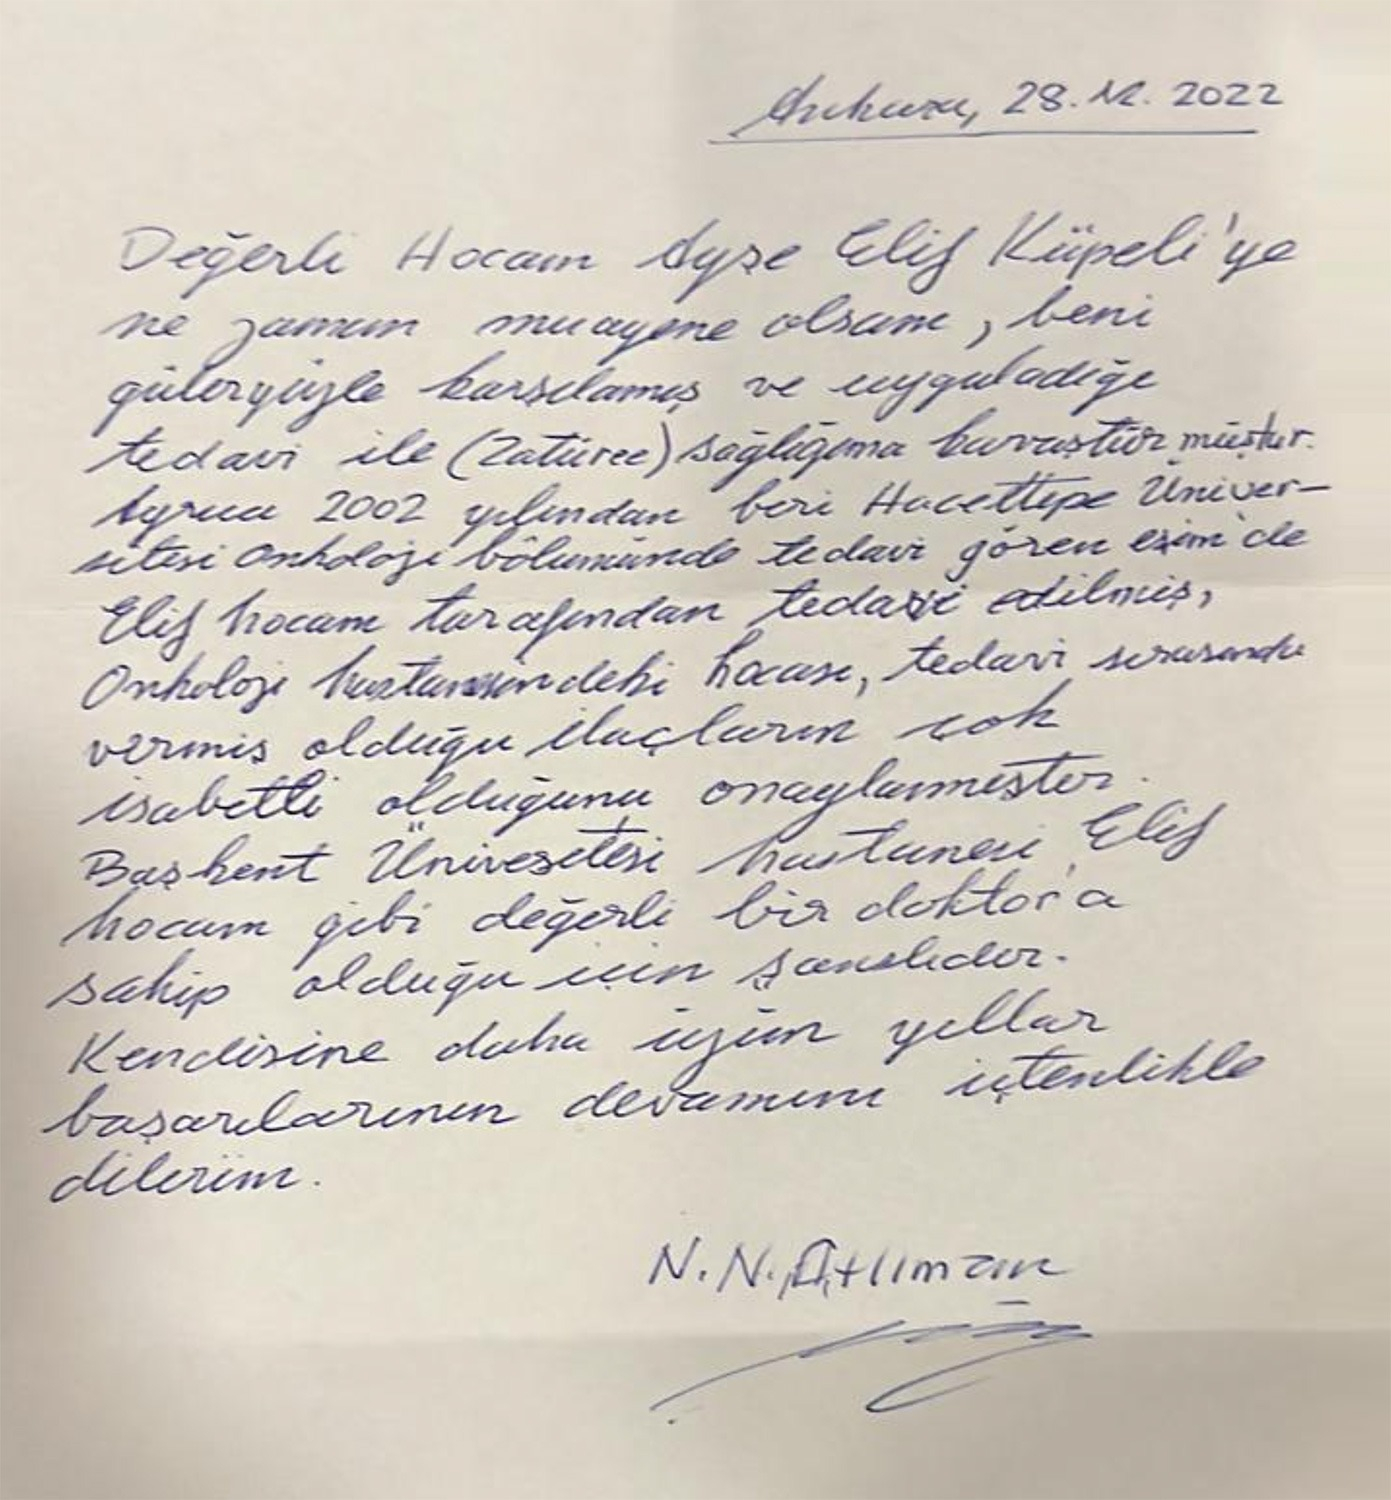 Ankara, 28.12.2022
Değerli Hocam Ayşe Elif Küpeli'ye
ne zaman muayene olsam, beni
güleryüzle karşılamış ve uyguladığı
tedavi ile (Zatüree) sağlığıma kavuştürmüştur.
Ayrıca 2002 yılından beri Hacettepe Üniver-
sitesi Onkoloji bölümünde tedavi gören eşim'de
Elif hocam tarafından tedavi edilmiş,
Onkoloji hastanesindeki hocası, tedavi sırasında
vermiş olduğu ilaçların çok
isabetli olduğunu onaylamıştır.
Başkent Ünivesitesi hastanesi Elif
hocam gibi değerli bir doktor'a
sahip olduğu için şanslıdır.
Kendisine daha uzun yıllar
başarılarının devamını içtenlikle
dilerim.
N.N. Atlıman